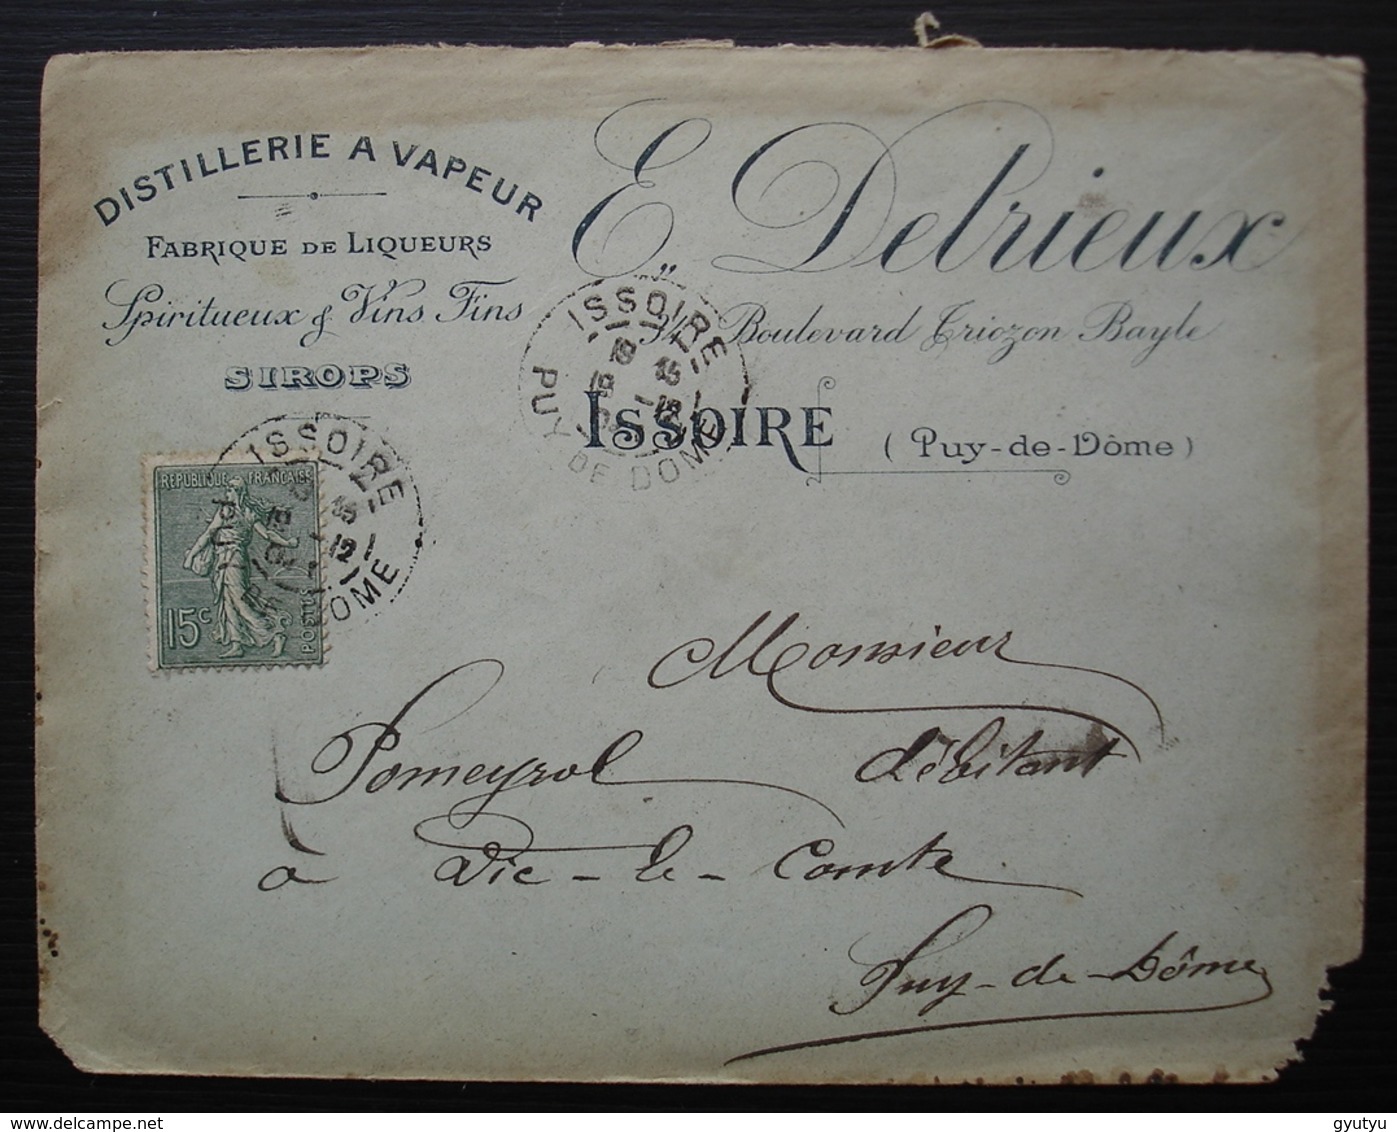 DISTILLERIE A VAPEUR
FABRIQUE DE LIQUEURS
Spiritueux & Vins Fins
SIROPS
E. Delrieux
Boulevard Triozon Bayle
ISSOIRE (Puy-de-Dôme)
ISSOIRE
PUY DE DOME
REPUBLIQUE FRANÇAISE
15c
POSTES
ISSOIRE
PUY DE DOME
Monsieur
Pomeyrol débitant
à Vic-le-Comte
Puy-de-Dôme
delcampe.net
gyutyu